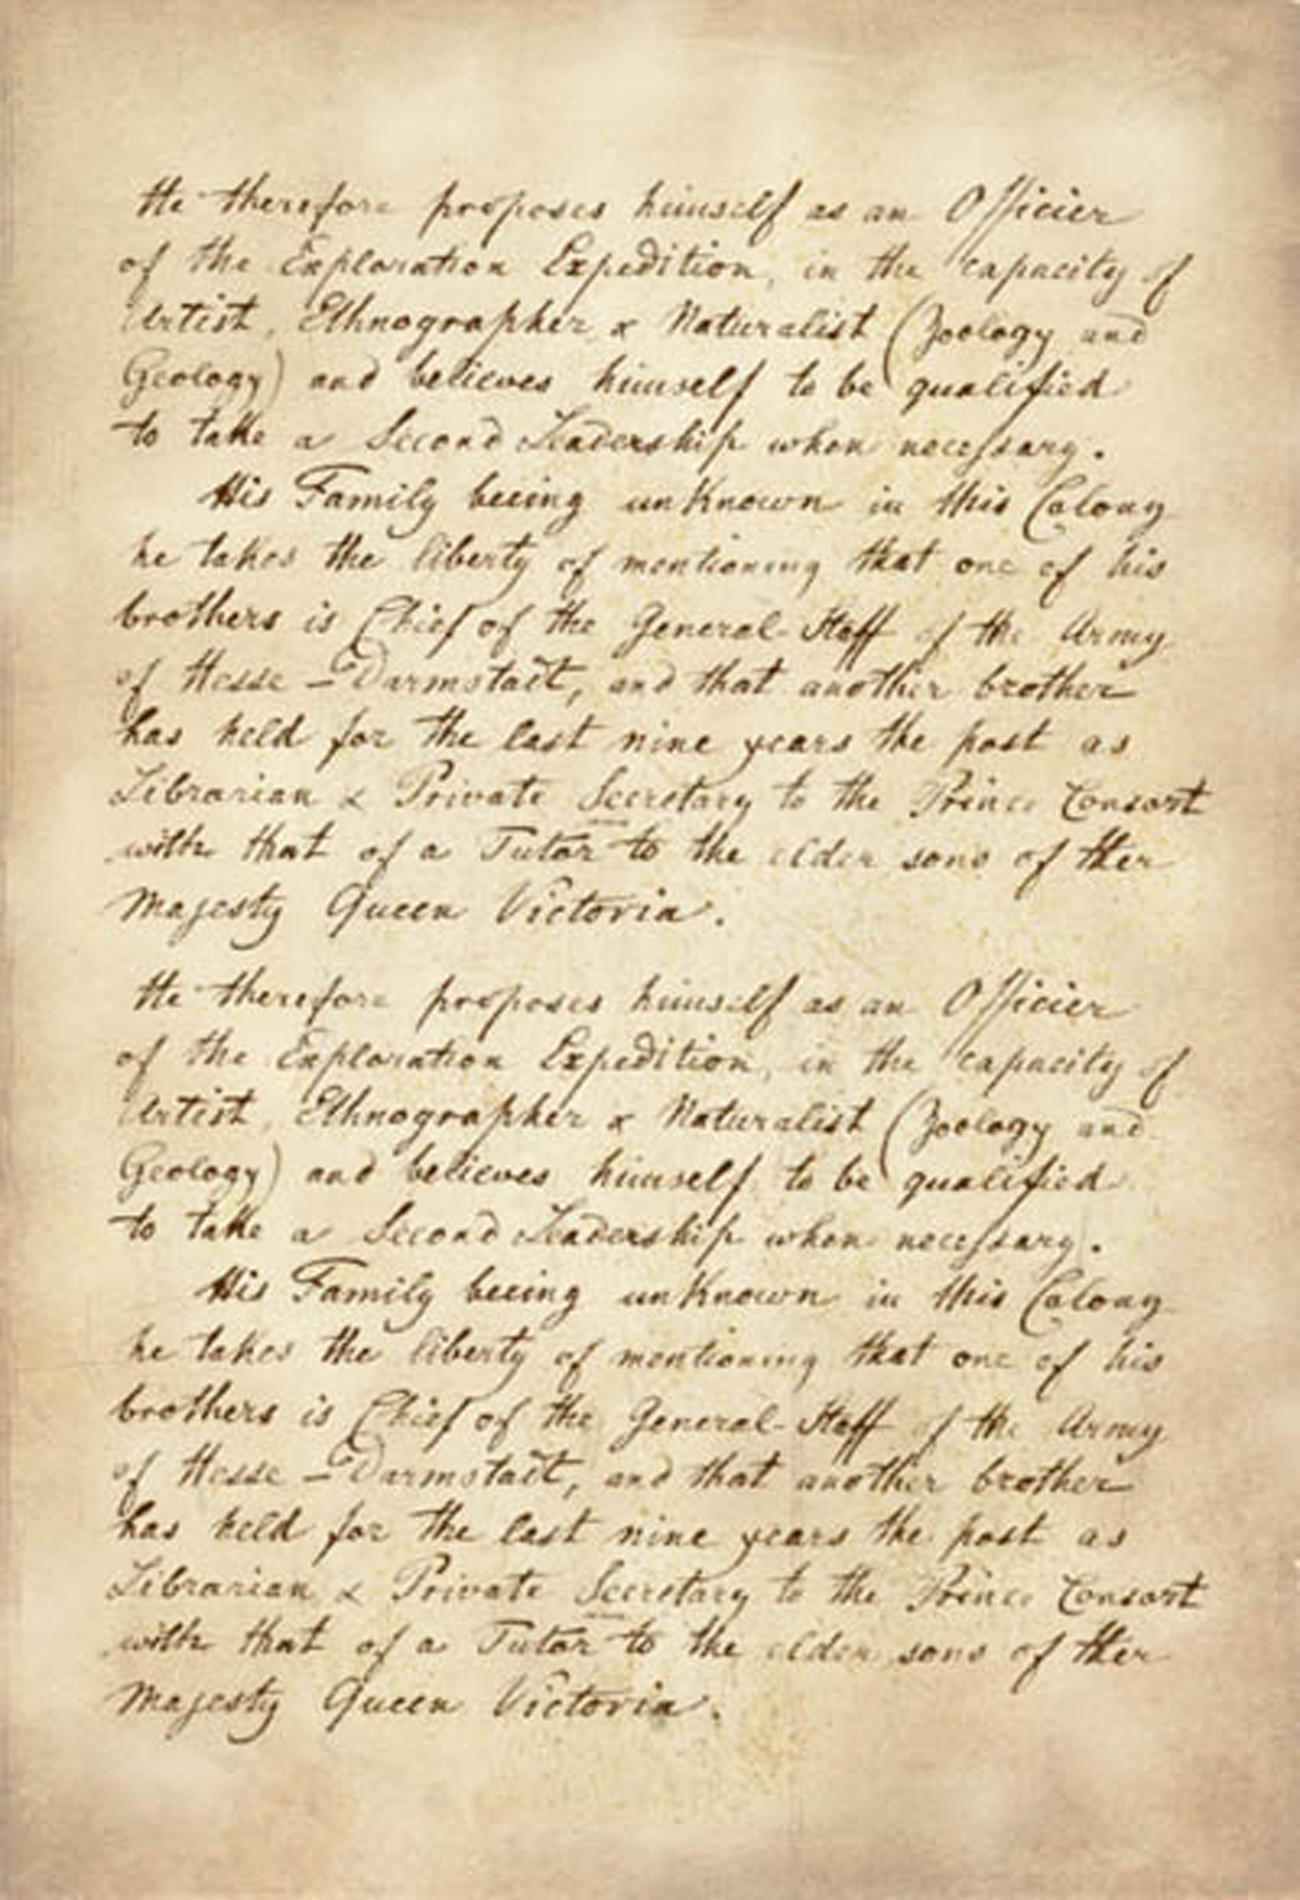 He therefore proposes himself as an Officier
of the Exploration Expedition, in the capacity of
Artist, Ethnographer & Naturalist (Zoology and
Geology) and believes himself to be qualified
to take a Second Leadership when necessary.
His Family beeing unKnown in this Colony
he takes the liberty of mentioning that one of his
brothers is Chief of the General-Staff of the Army
of Hesse-Darmstadt, and that another brother
has held for the last nine years the post as
Librarian & Private Secretary to the Prince Consort
with that of a Tutor to the elder sons of Her
Majesty Queen Victoria.
He therefore proposes himself as an Officier
of the Exploration Expedition, in the capacity of
Artist, Ethnographer & Naturalist (Zoology and
Geology) and believes himself to be qualified
to take a Second Leadership when necessary.
His Family beeing unKnown in this Colony
he takes the liberty of mentioning that one of his
brothers is Chief of the General-Staff of the Army
of Hesse-Darmstadt, and that another brother
has held for the last nine years the post as
Librarian & Private Secretary to the Prince Consort
with that of a Tutor to the elder sons of Her
Majesty Queen Victoria.